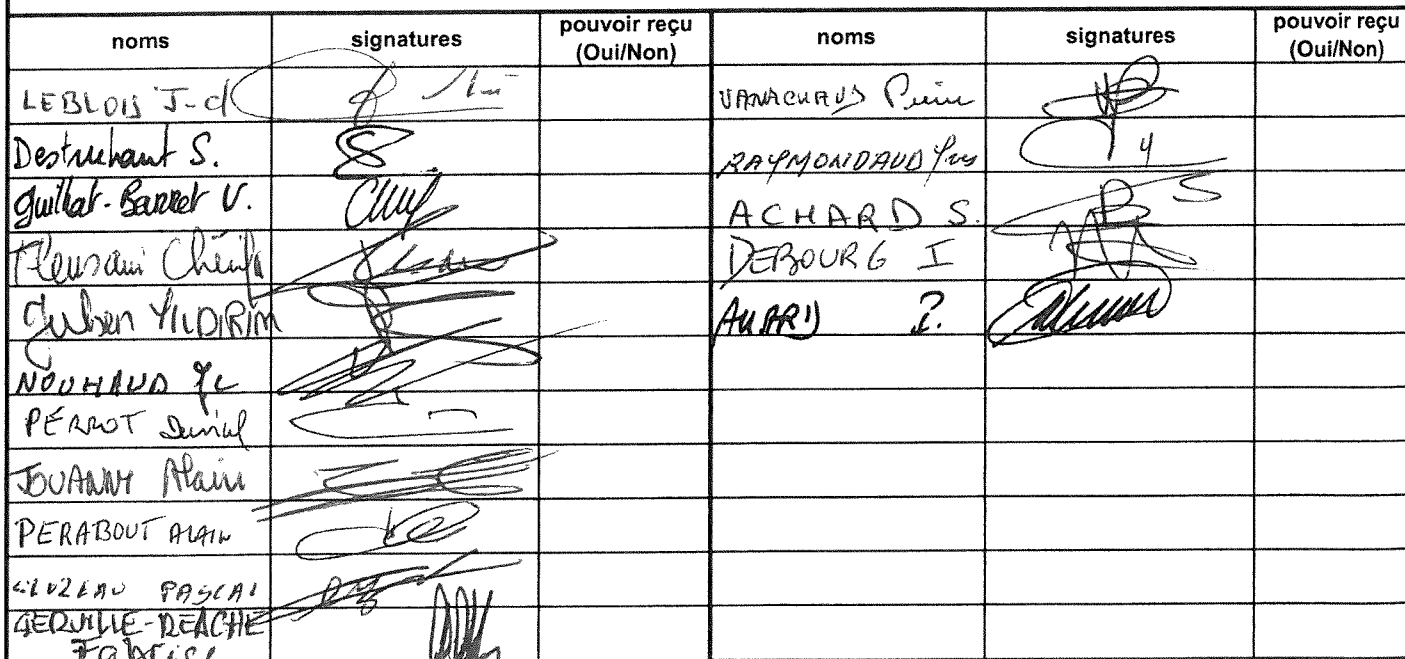 noms signatures pouvoir reçu (Oui/Non) noms signatures pouvoir reçu (Oui/Non)
LEBLOIS J-cl
VANACHAUS Pierre
Destruhaut S.
RAYMONDAUD Yves
Guillat-Barret V.
ACHARD S.
Chérifa
DEBOURG I
YILDIRIM
P.
NOUHAUD JL
PERROT Daniel
JOUANNY Alain
PERABOUT ALAIN
CLUZEAU PASCAL
GERVILLE-REACHE
Fabrice